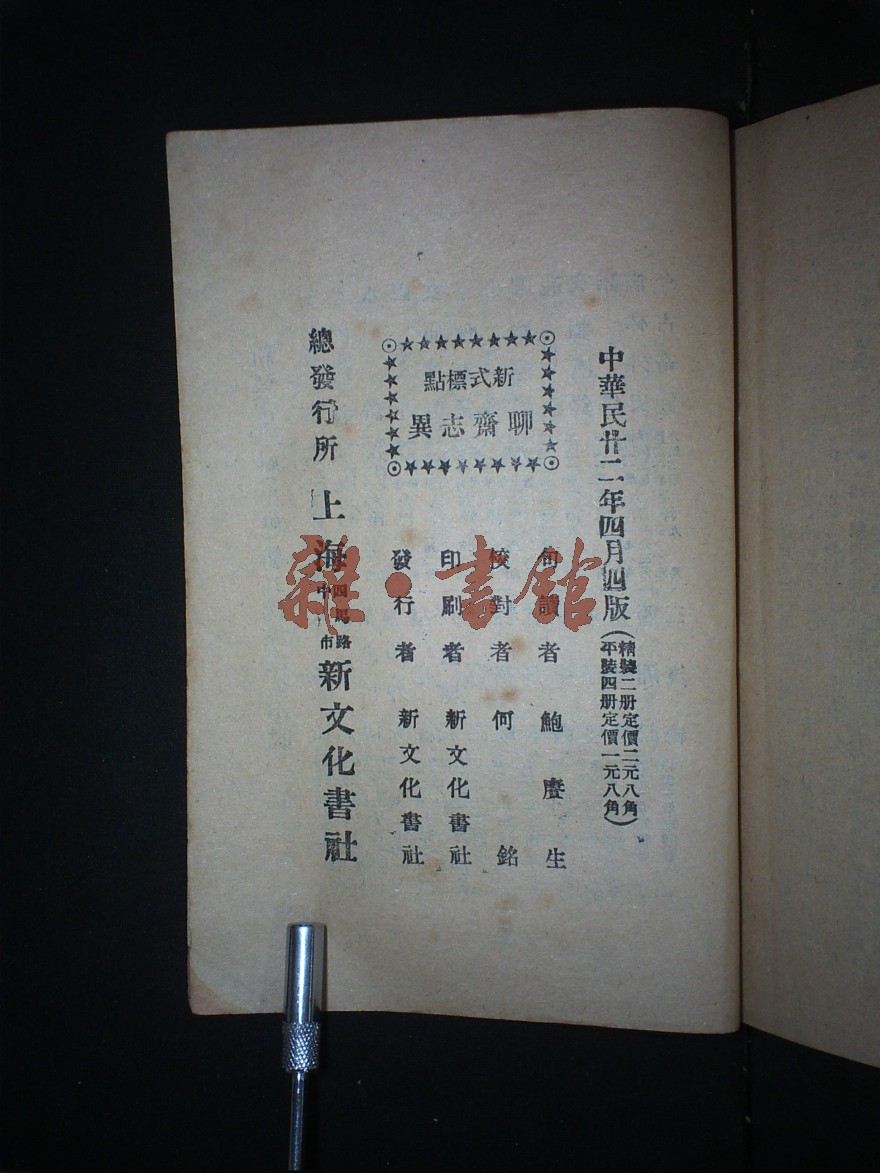 中華民廿二年四月四版
(精裝二册定價二元八角
平裝四册定價一元八角)
新式標點
聊齋志異
句讀者 鮑賡生
校對者 何銘
印刷者 新文化書社
發行者 新文化書社
總發行所 上海四馬路中市 新文化書社
雜·書館